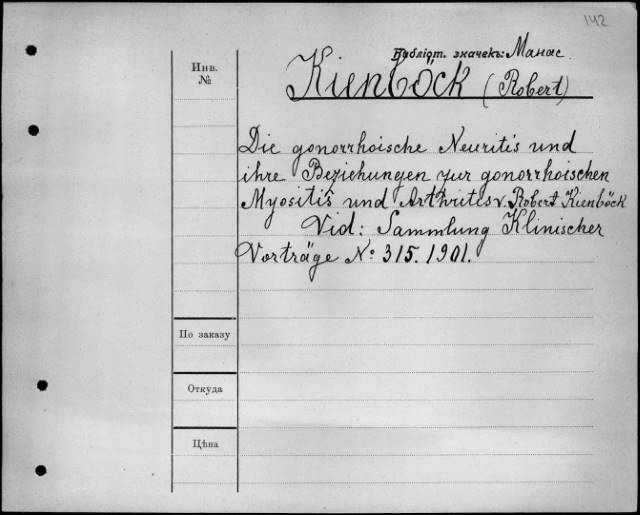 142
Библіот. значекъ: Манас.
Инв.
№
Kienböck (Robert)
Die gonorrhoische Neuritis und
ihre Beziehungen zur gonorrhoischen
Myositis und Arthritis v. Robert Kienböck
Vid: Sammlung Klinischer
Vorträge № 315. 1901.
По заказу
Откуда
Цѣна